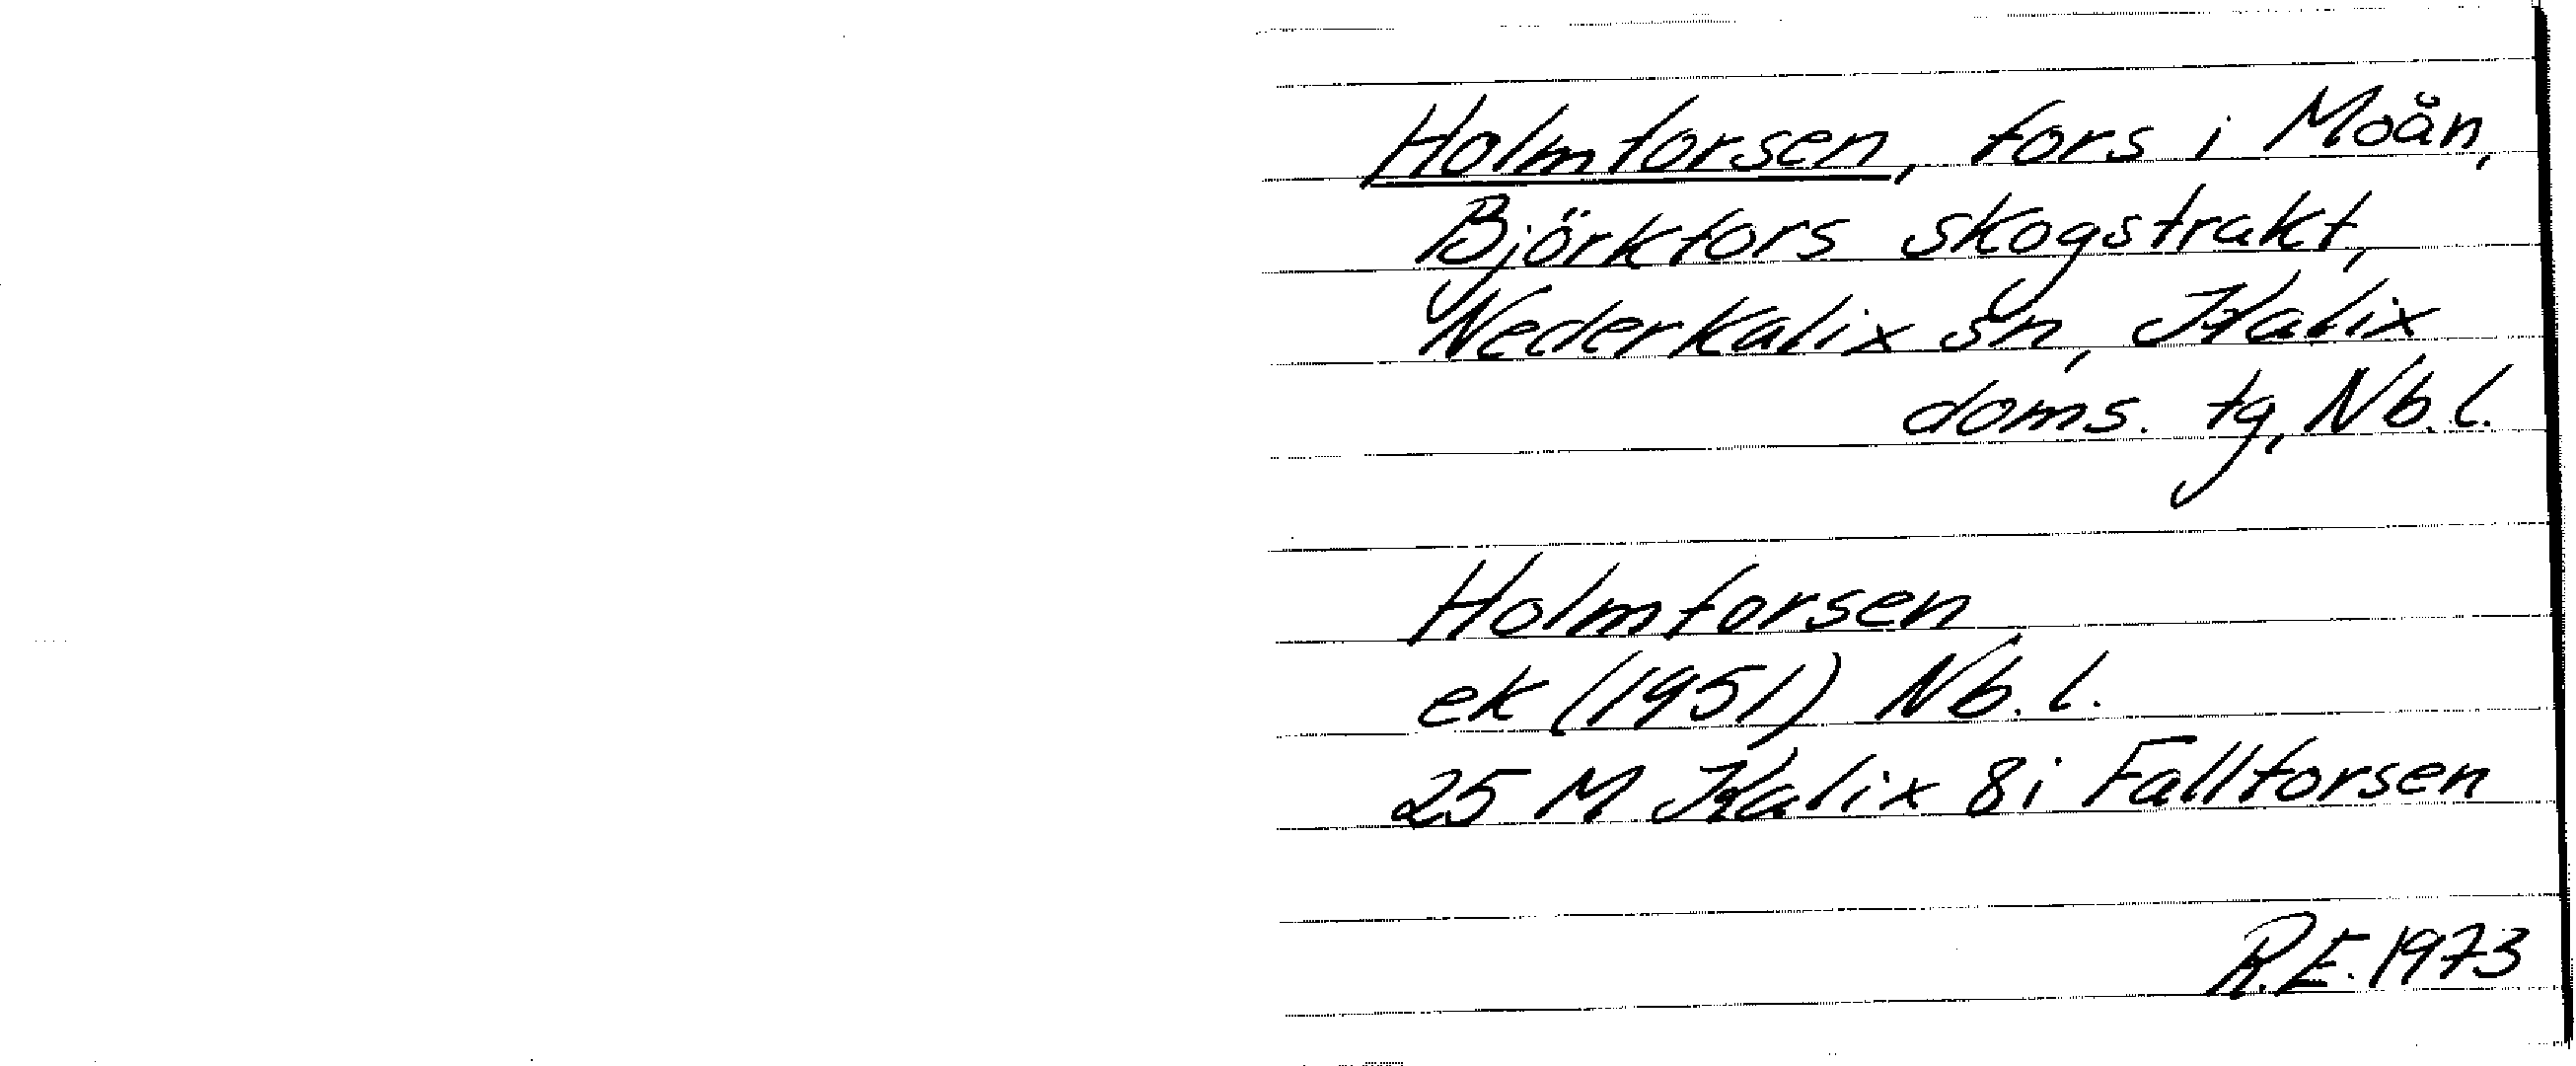 Holmforsen, fors i Moån,
Björkfors skogstrakt,
Nederkalix sn, Kalix
doms. tg, Nb.l.
Holmforsen
ek (1951) Nb.l.
25 M Kalix 8i Fallforsen
R.E. 1973